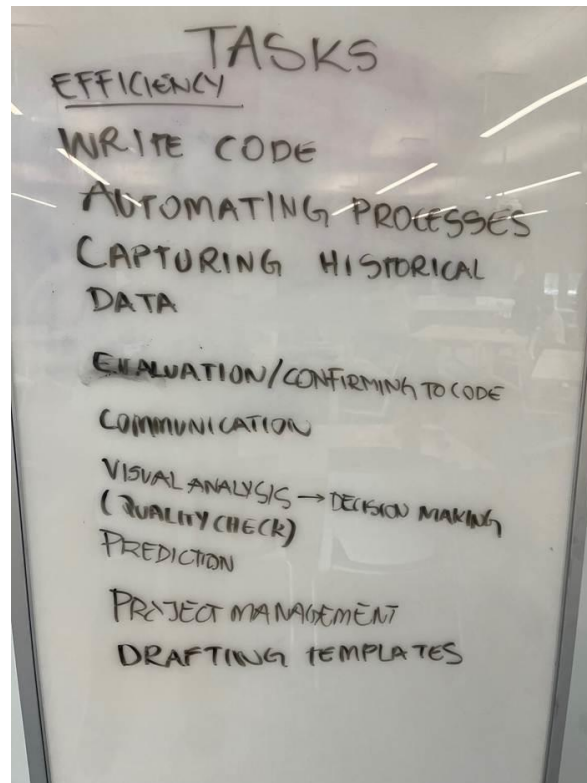 TASKS
EFFICIENCY
WRITE CODE
AUTOMATING PROCESSES
CAPTURING HISTORICAL
DATA
EVALUATION/CONFIRMING TO CODE
COMMUNICATION
VISUAL ANALYSIS → DECISION MAKING
(QUALITY CHECK)
PREDICTION
PROJECT MANAGEMENT
DRAFTING TEMPLATES